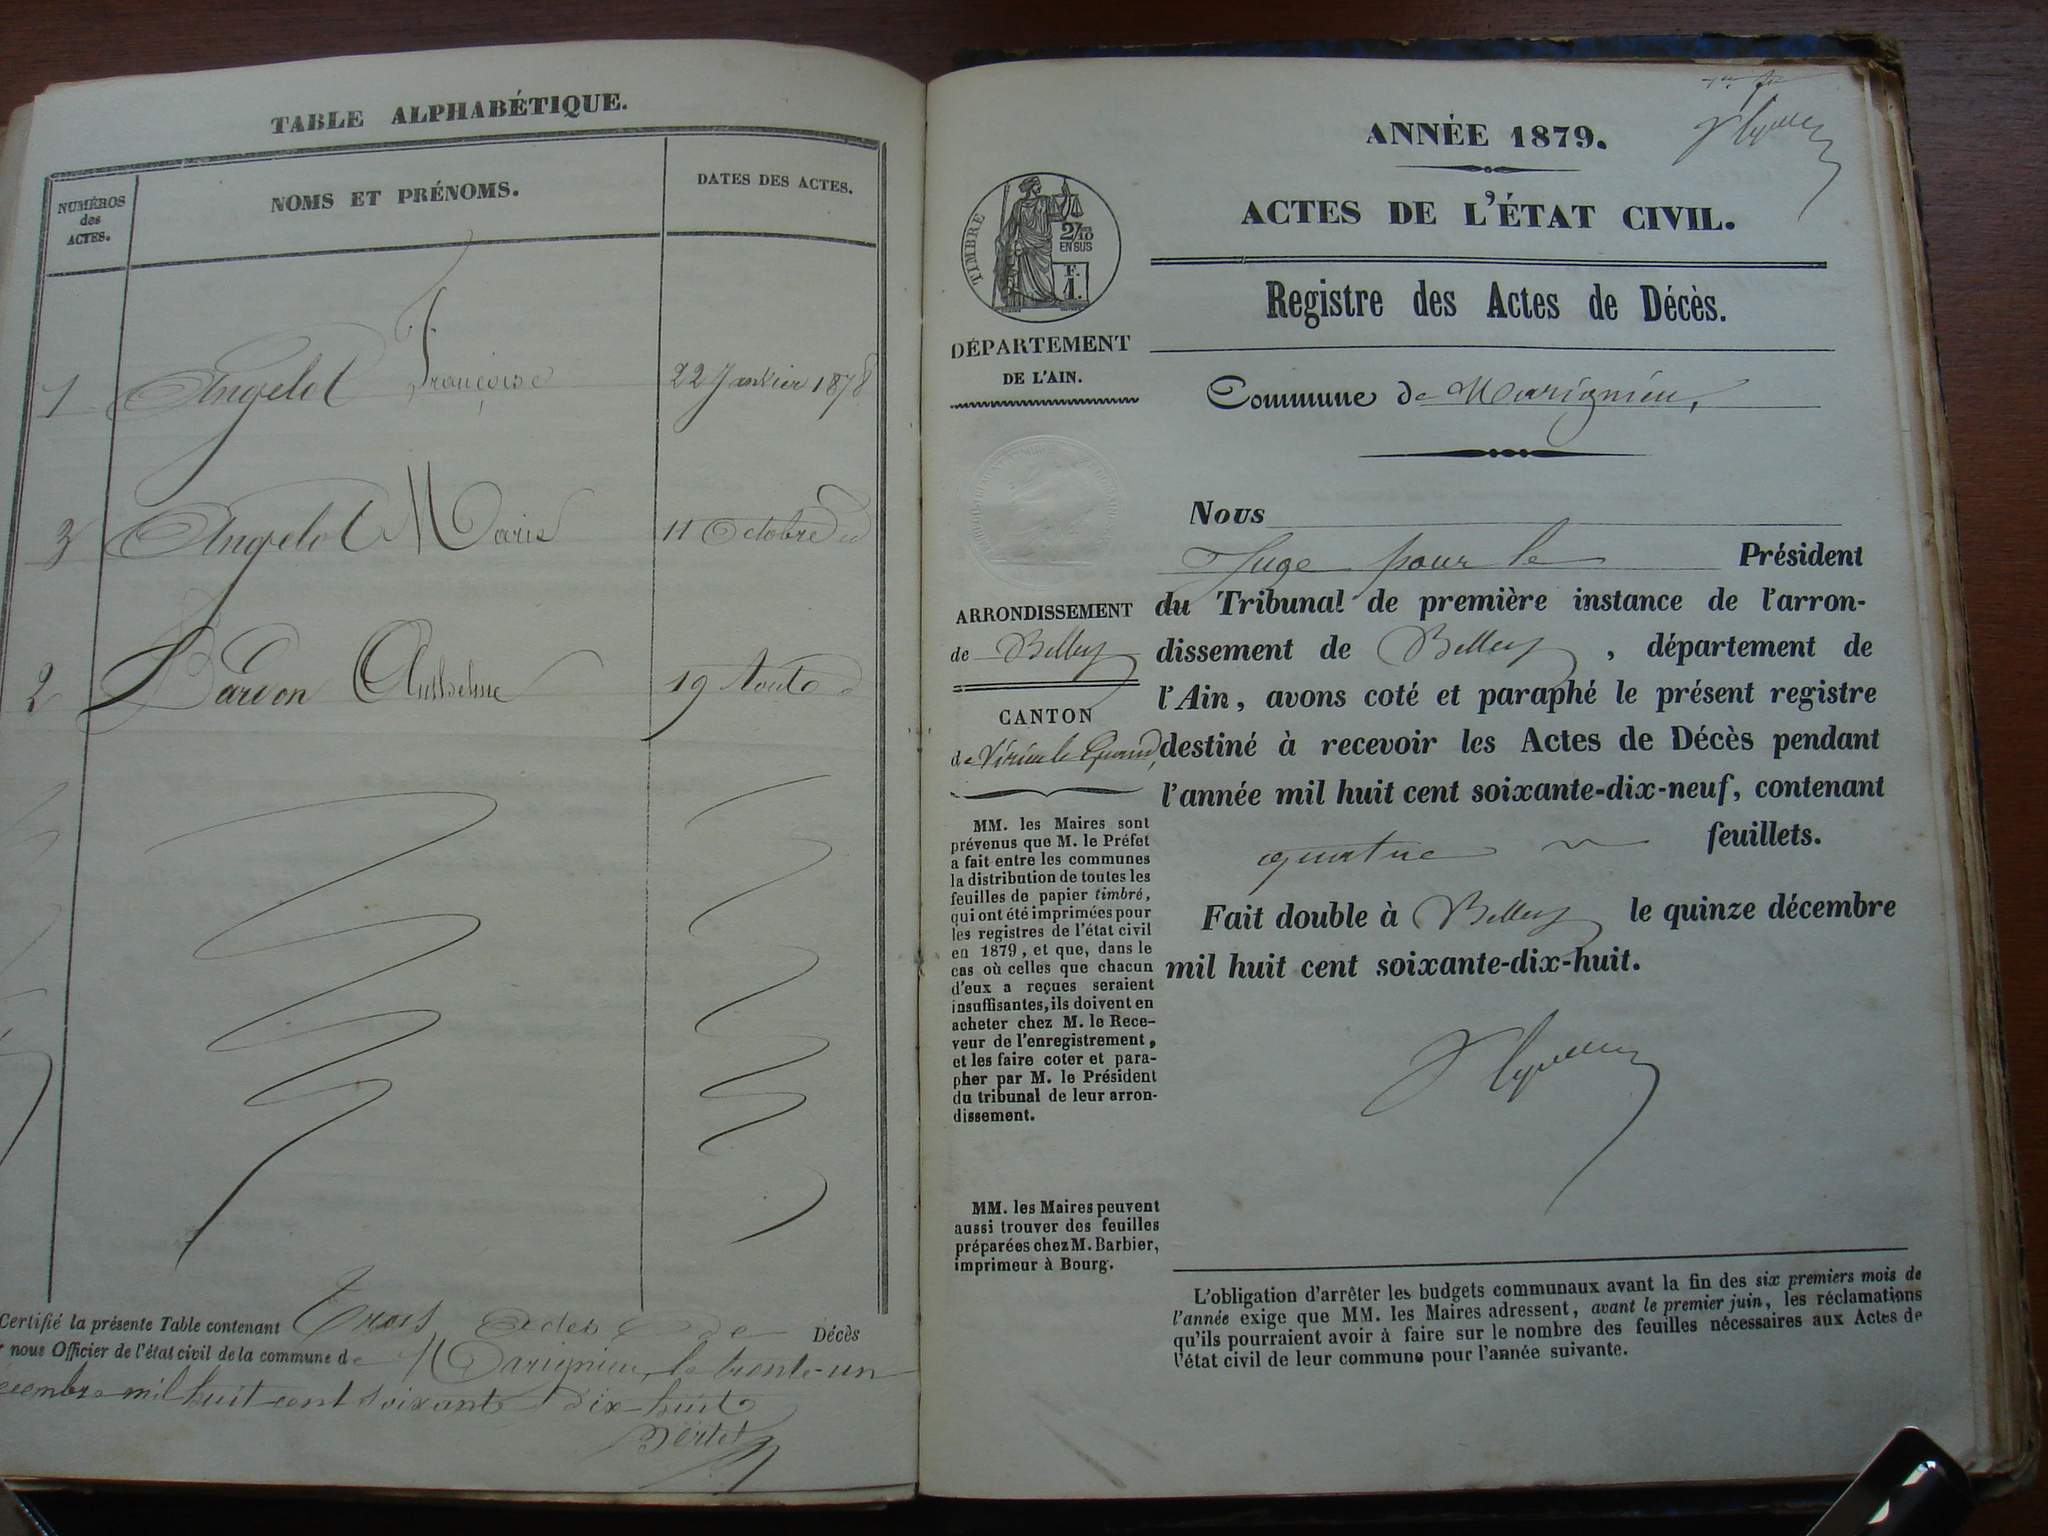 TABLE ALPHABÉTIQUE.
NUMÉROS
des
ACTES.
NOMS ET PRÉNOMS.
DATES DES ACTES.
1 Angelot Françoise 22 Janvier 1878
3 Angelot Marie 11 Octobre
2 Bardon Anthelme 19 Août
Certifié la présente Table contenant trois actes de Décès
nous Officier de l'état civil de la commune de Marignieu, le trente-un
décembre mil huit cent soixante dix-huit
Bertet
ANNÉE 1879.
ACTES DE L'ÉTAT CIVIL.
TIMBRE
2/10
EN SUS
F.
1.
Registre des Actes de Décès.
DÉPARTEMENT
DE L'AIN.
Commune de Marignieu,
ARRONDISSEMENT
de Belley
CANTON
de Virieu le Grand,
MM. les Maires sont
prévenus que M. le Préfet
a fait entre les communes
la distribution de toutes les
feuilles de papier timbré,
qui ont été imprimées pour
les registres de l'état civil
en 1879, et que, dans le
cas où celles que chacun
d'eux a reçues seraient
insuffisantes, ils doivent en
acheter chez M. le Rece-
veur de l'enregistrement,
et les faire coter et para-
pher par M. le Président
du tribunal de leur arron-
dissement.
MM. les Maires peuvent
aussi trouver des feuilles
préparées chez M. Barbier,
imprimeur à Bourg.
Nous
Juge pour le Président
du Tribunal de première instance de l'arron-
dissement de Belley, département de
l'Ain, avons coté et paraphé le présent registre
destiné à recevoir les Actes de Décès pendant
l'année mil huit cent soixante-dix-neuf, contenant
quatre feuillets.
Fait double à Belley le quinze décembre
mil huit cent soixante-dix-huit.
L'obligation d'arrêter les budgets communaux avant la fin des six premiers mois de
l'année exige que MM. les Maires adressent, avant le premier juin, les réclamations
qu'ils pourraient avoir à faire sur le nombre des feuilles nécessaires aux Actes de
l'état civil de leur commune pour l'année suivante.